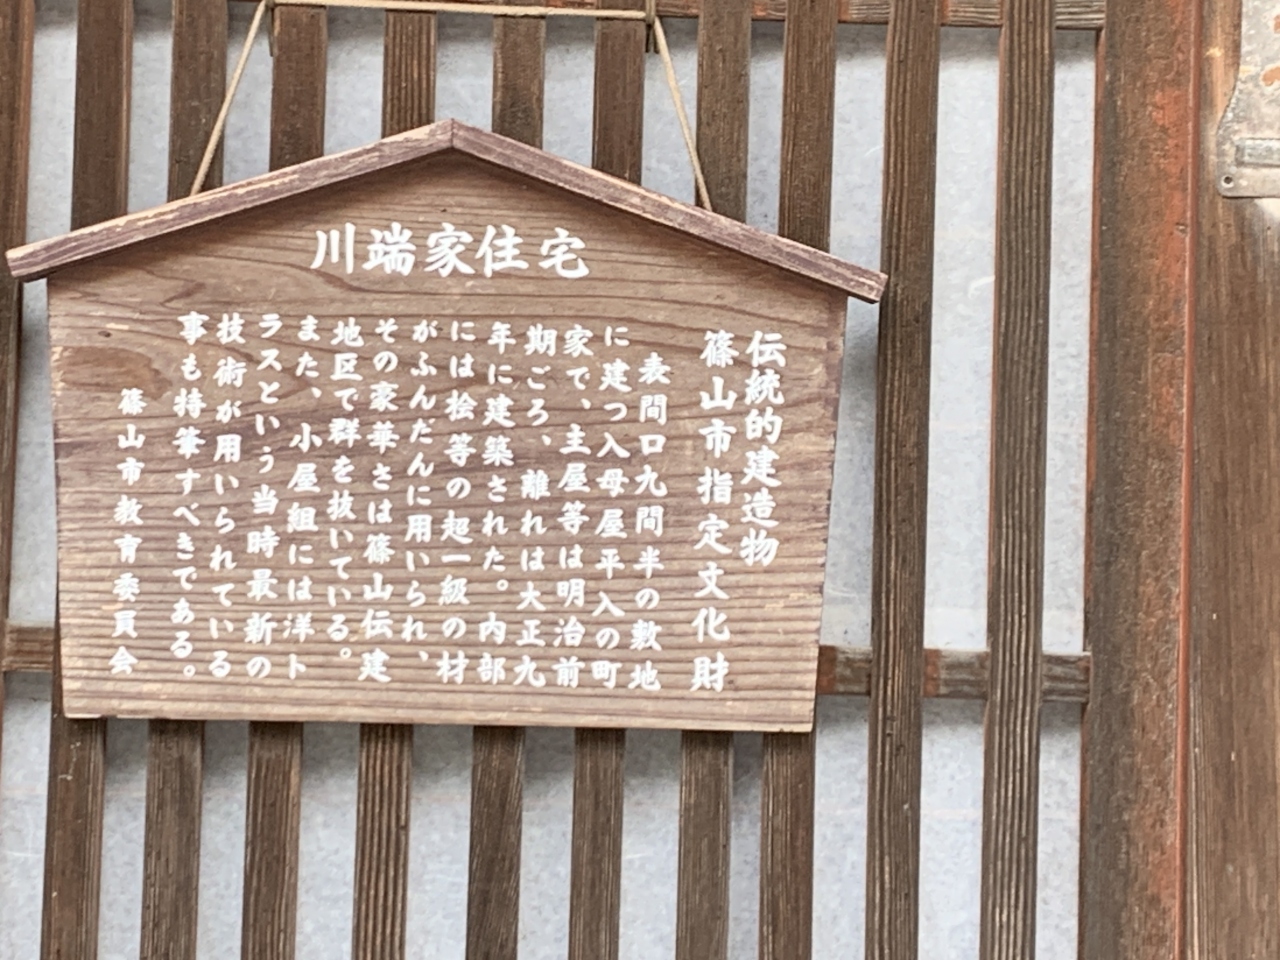 川端家住宅
伝統的建造物
篠山市指定文化財
表間口九間半の敷地
に建つ入母屋平入の町
家で、主屋等は明治前
期ごろ、離れは大正九
年に建築された。内部
には桧等の超一級の材
がふんだんに用いられ、
その豪華さは篠山伝建
地区で群を抜いている。
また、小屋組には洋ト
ラスという当時最新の
技術が用いられている
事も特筆すべきである。
篠山市教育委員会